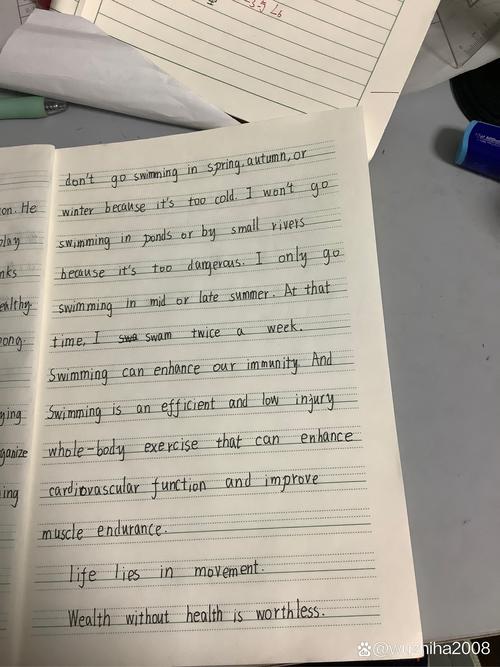 don't go swimming in spring, autumn, or
winter because it's too cold. I won't go
swimming in ponds or by small rivers
because it's too dangerous. I only go
swimming in mid or late summer. At that
time, I swa swam twice a week.
Swimming can enhance our immunity. And
Swimming is an efficient and low injury
whole-body exercise that can enhance
cardiovascular function and improve
muscle endurance.
life lies in movement.
Wealth without health is worthless.
on. He
play
nks
ealthy.
ong.
ying
ganize
ing
@wuzhiha2008